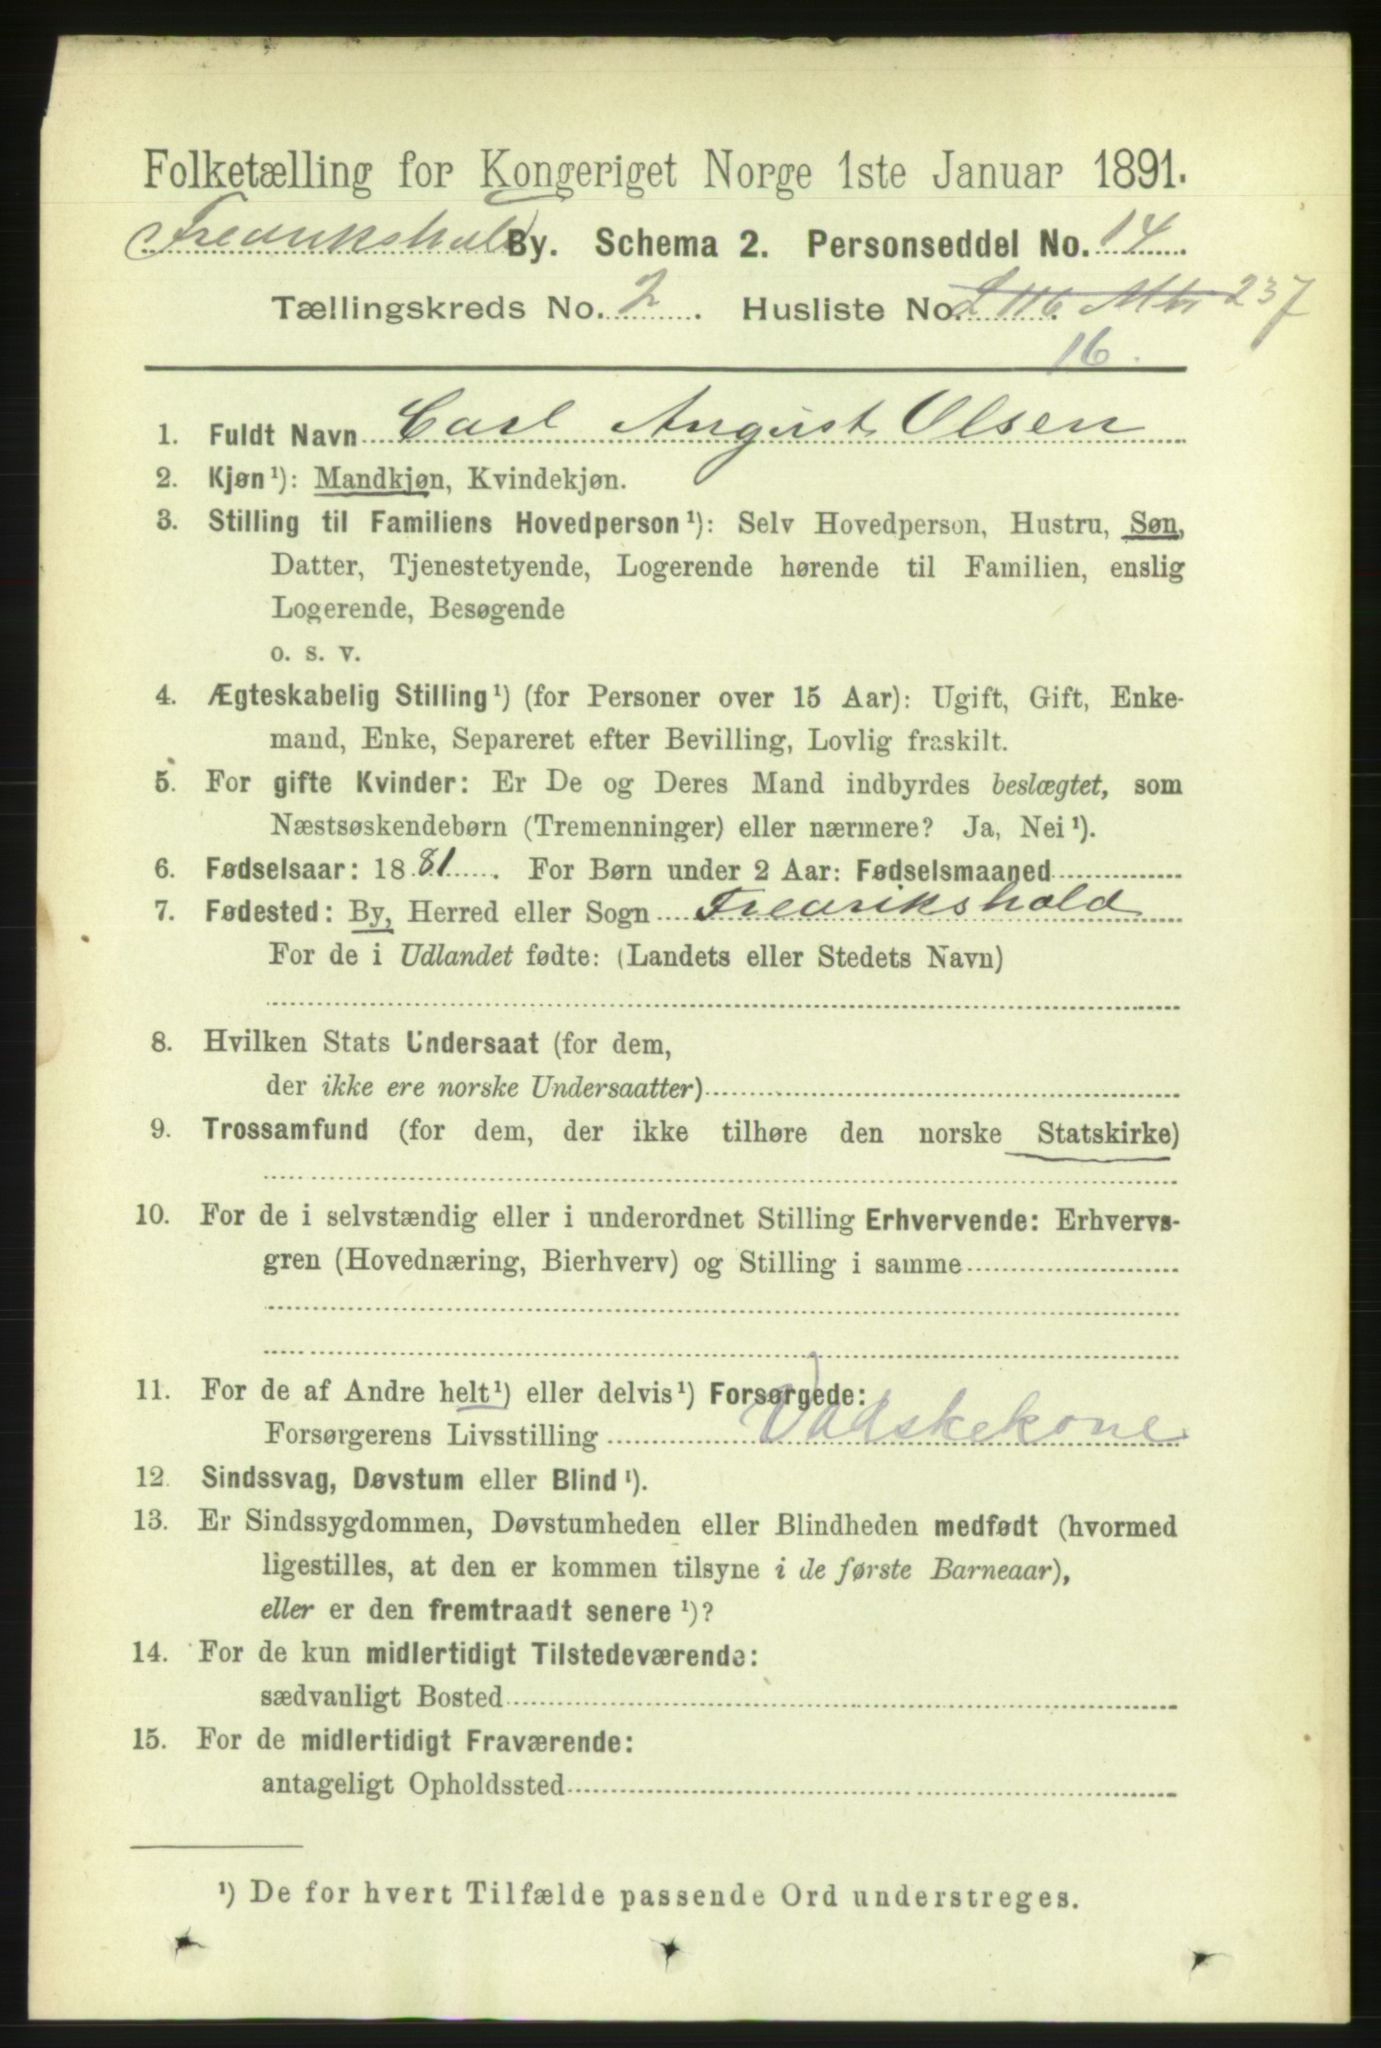 Folketælling for Kongeriget Norge 1ste Januar 1891.
Fredrikshald By. Schema 2. Personseddel No. 14
Tællingskreds No. 2. Husliste No. 237
16.
1. Fuldt Navn Carl August Olsen
2. Kjøn¹): Mandkjøn, Kvindekjøn.
3. Stilling til Familiens Hovedperson¹): Selv Hovedperson, Hustru, Søn,
Datter, Tjenestetyende, Logerende hørende til Familien, enslig
Logerende, Besøgende
o. s. v.
4. Ægteskabelig Stilling¹) (for Personer over 15 Aar): Ugift, Gift, Enke-
mand, Enke, Separeret efter Bevilling, Lovlig fraskilt.
5. For gifte Kvinder: Er De og Deres Mand indbyrdes beslægtet, som
Næstsøskendebørn (Tremenninger) eller nærmere? Ja, Nei¹).
6. Fødselsaar: 1881. For Børn under 2 Aar: Fødselsmaaned
7. Fødested: By, Herred eller Sogn Fredrikshald
For de i Udlandet fødte: (Landets eller Stedets Navn)
8. Hvilken Stats Undersaat (for dem,
der ikke ere norske Undersaatter)
9. Trossamfund (for dem, der ikke tilhøre den norske Statskirke)
10. For de i selvstændig eller i underordnet Stilling Erhvervende: Erhvervs-
gren (Hovednæring, Bierhverv) og Stilling i samme
11. For de af Andre helt¹) eller delvis¹) Forsørgede:
Forsørgerens Livsstilling Vadskekone
12. Sindssvag, Døvstum eller Blind¹).
13. Er Sindssygdommen, Døvstumheden eller Blindheden medfødt (hvormed
ligestilles, at den er kommen tilsyne i de første Barneaar),
eller er den fremtraadt senere¹)?
14. For de kun midlertidigt Tilstedeværende:
sædvanligt Bosted
15. For de midlertidigt Fraværende:
antageligt Opholdssted
¹) De for hvert Tilfælde passende Ord understreges.